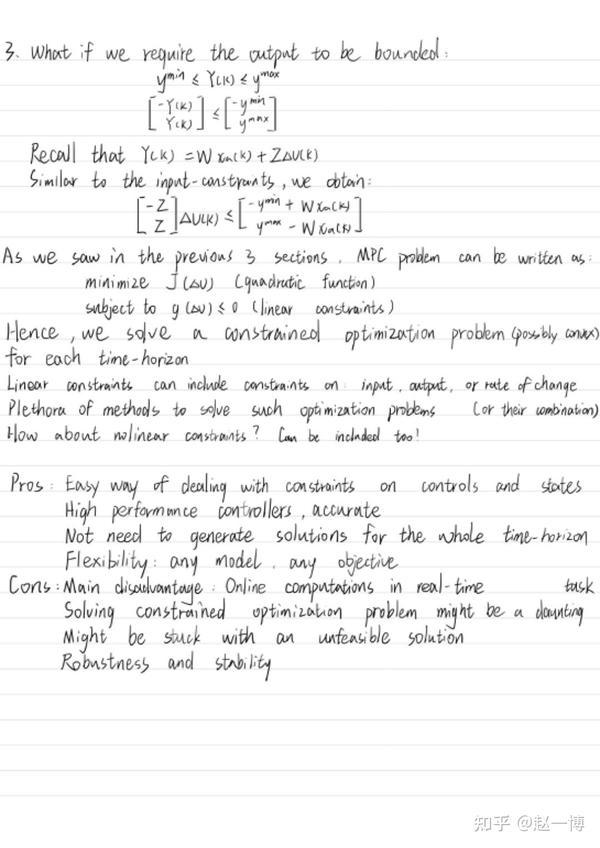 3. What if we require the output to be bounded:
y^min ≤ Y(k) ≤ y^max
[-Y(k) Y(k)] ≤ [-y^min y^max]
Recall that Y(k) = W xa(k) + ZΔU(k)
Similar to the input-constraints, we obtain:
[-Z Z] ΔU(k) ≤ [-y^min + W xa(k) y^max - W xa(k)]
As we saw in the previous 3 sections, MPC problem can be written as:
minimize J(ΔU) (quadratic function)
subject to g(ΔU) ≤ 0 (linear constraints)
Hence, we solve a constrained optimization problem (possibly convex)
for each time-horizon
Linear constraints can include constraints on: input, output, or rate of change
Plethora of methods to solve such optimization problems (or their combination)
How about nolinear constraints? Can be included too!
Pros: Easy way of dealing with constraints on controls and states
High performance controllers, accurate
Not need to generate solutions for the whole time-horizon
Flexibility: any model, any objective
Cons: Main disadvantage: Online computations in real-time task
Solving constrained optimization problem might be a daunting
Might be stuck with an unfeasible solution
Robustness and stability
知乎 @赵一博